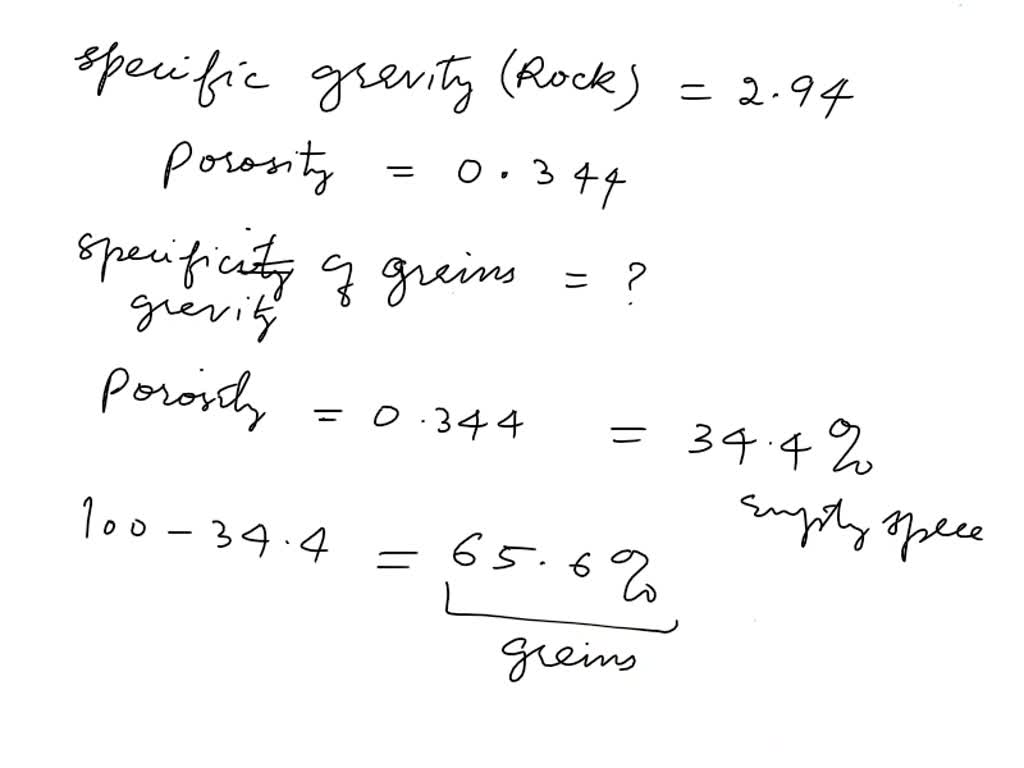 specific gravity (Rock) = 2.94
Porosity = 0.344
specificity of grains = ?
gravity
Porosity = 0.344 = 34.4%
Empty space
100 - 34.4 = 65.6%
grains